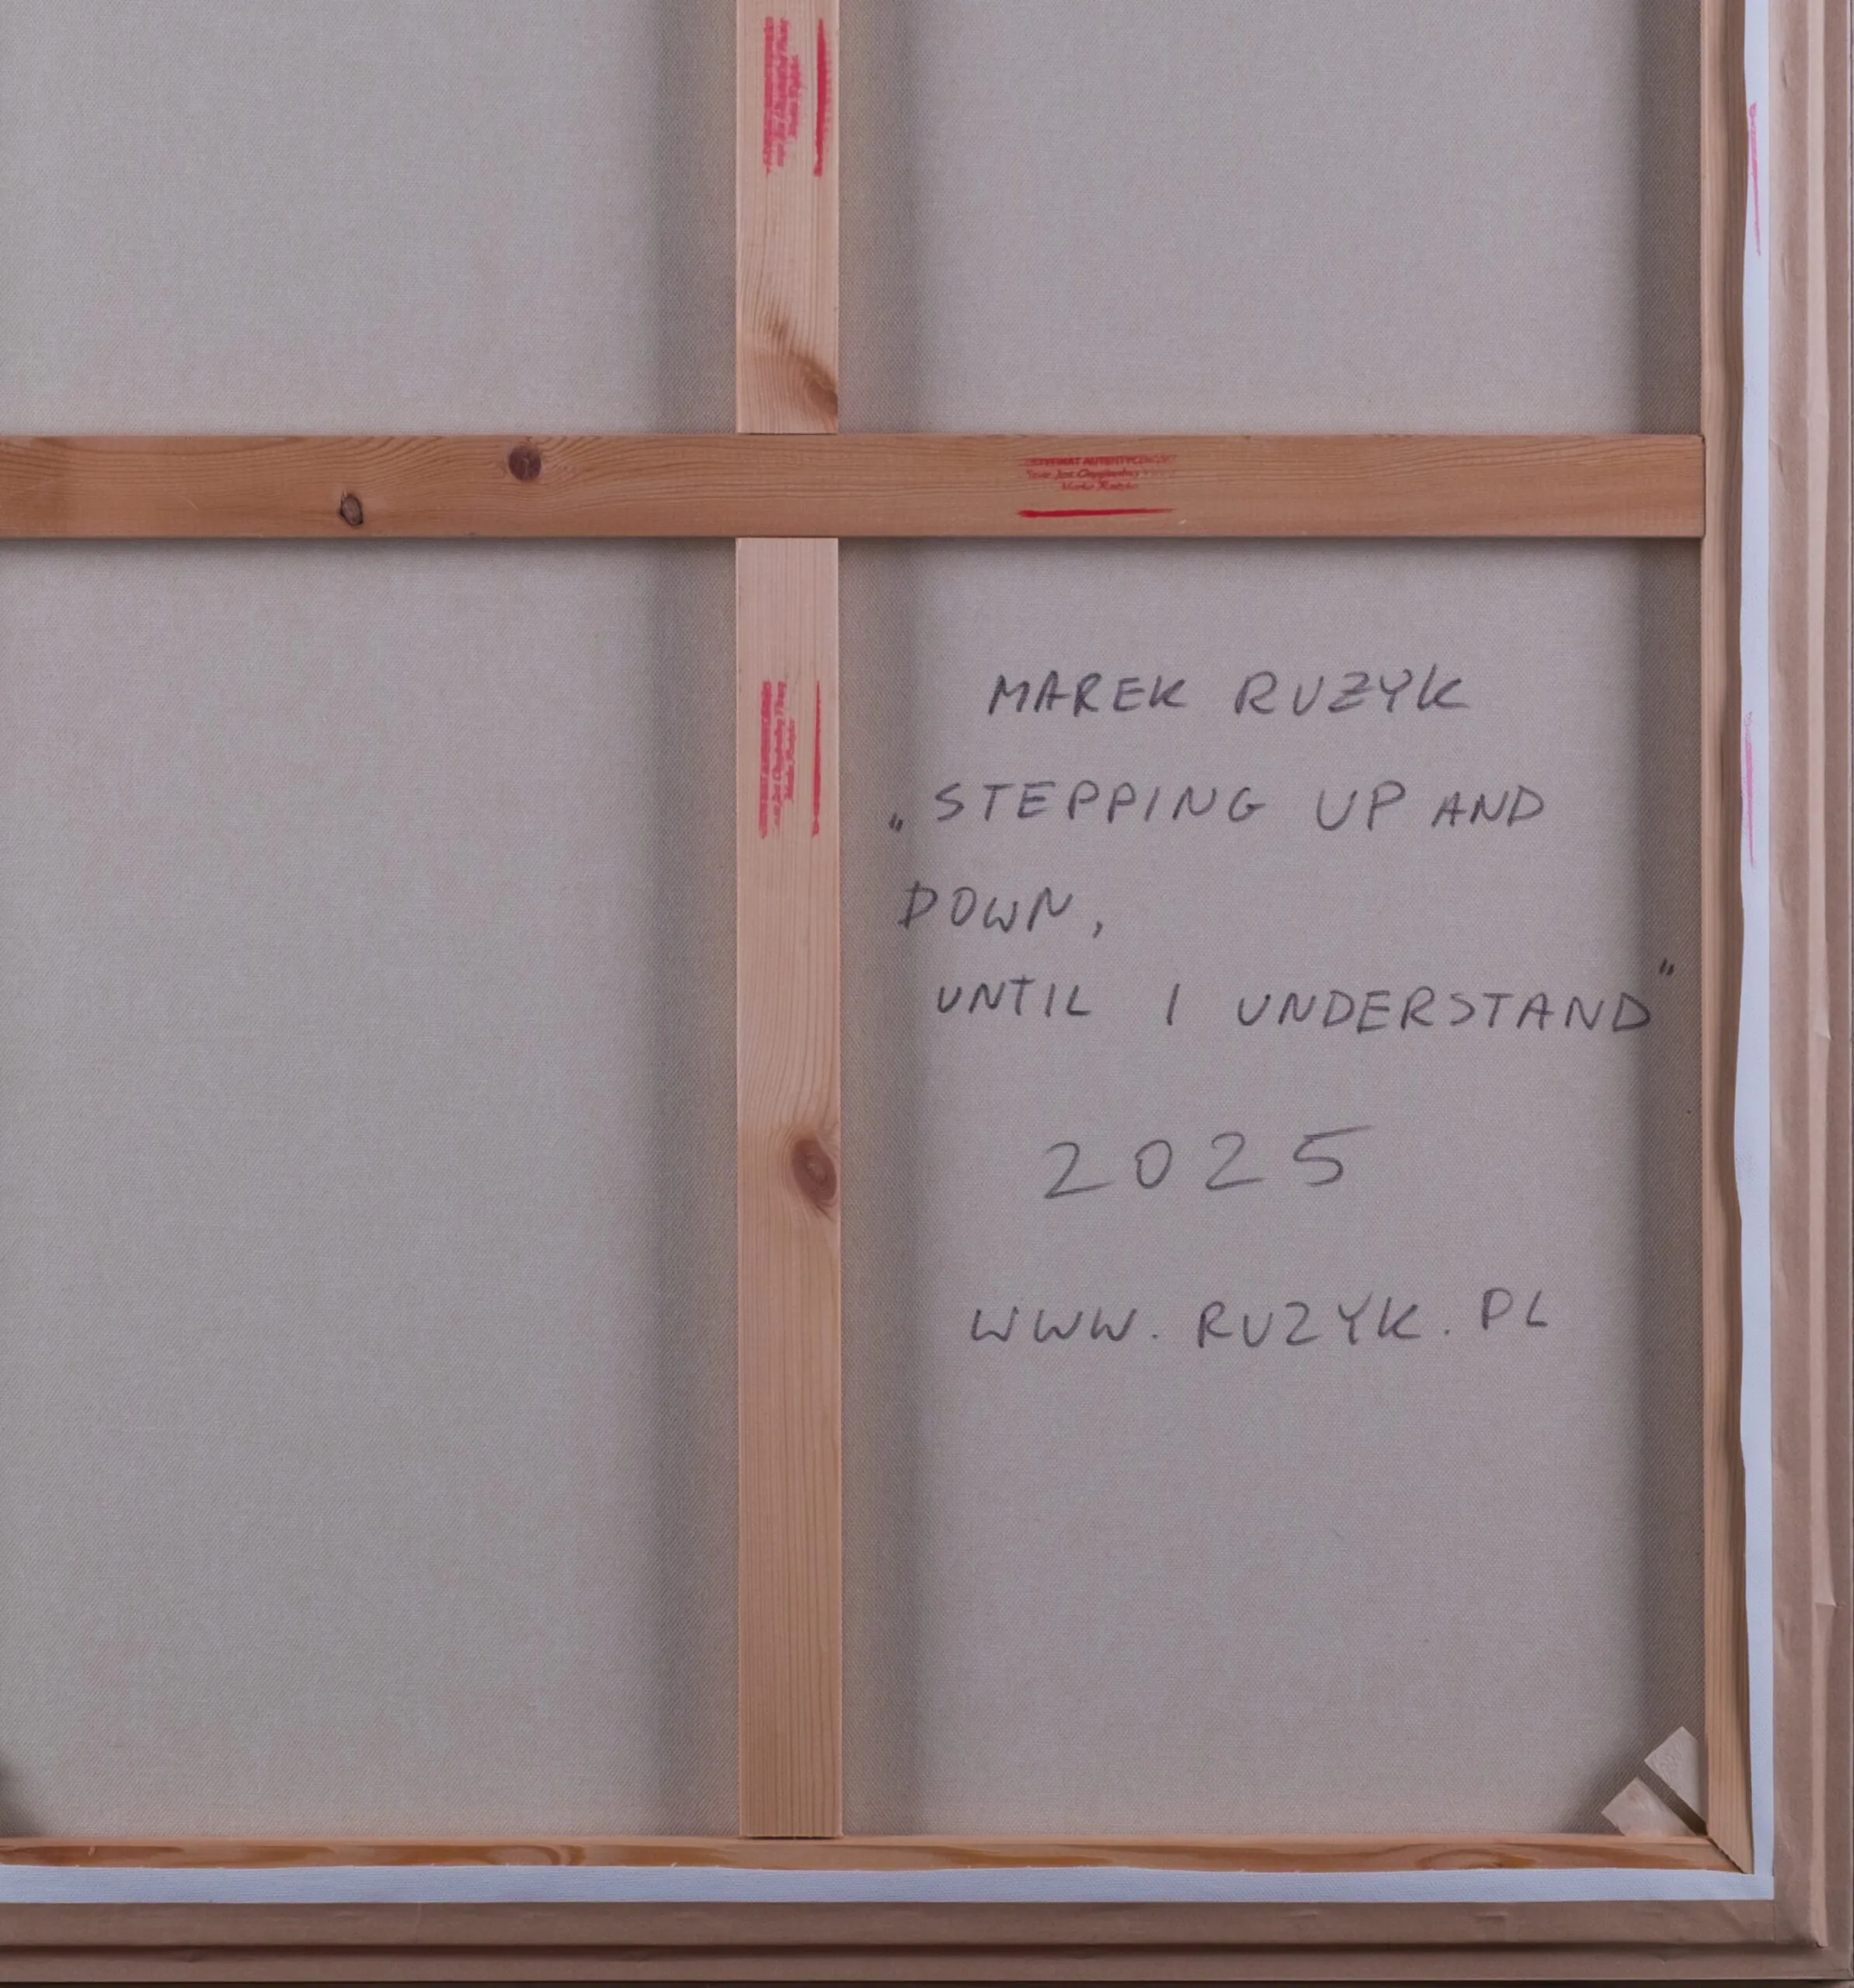 AUTENTYCZNOŚCI
MAREK RUZYK
„STEPPING UP AND
DOWN,
UNTIL I UNDERSTAND"
2025
WWW.RUZYK.PL